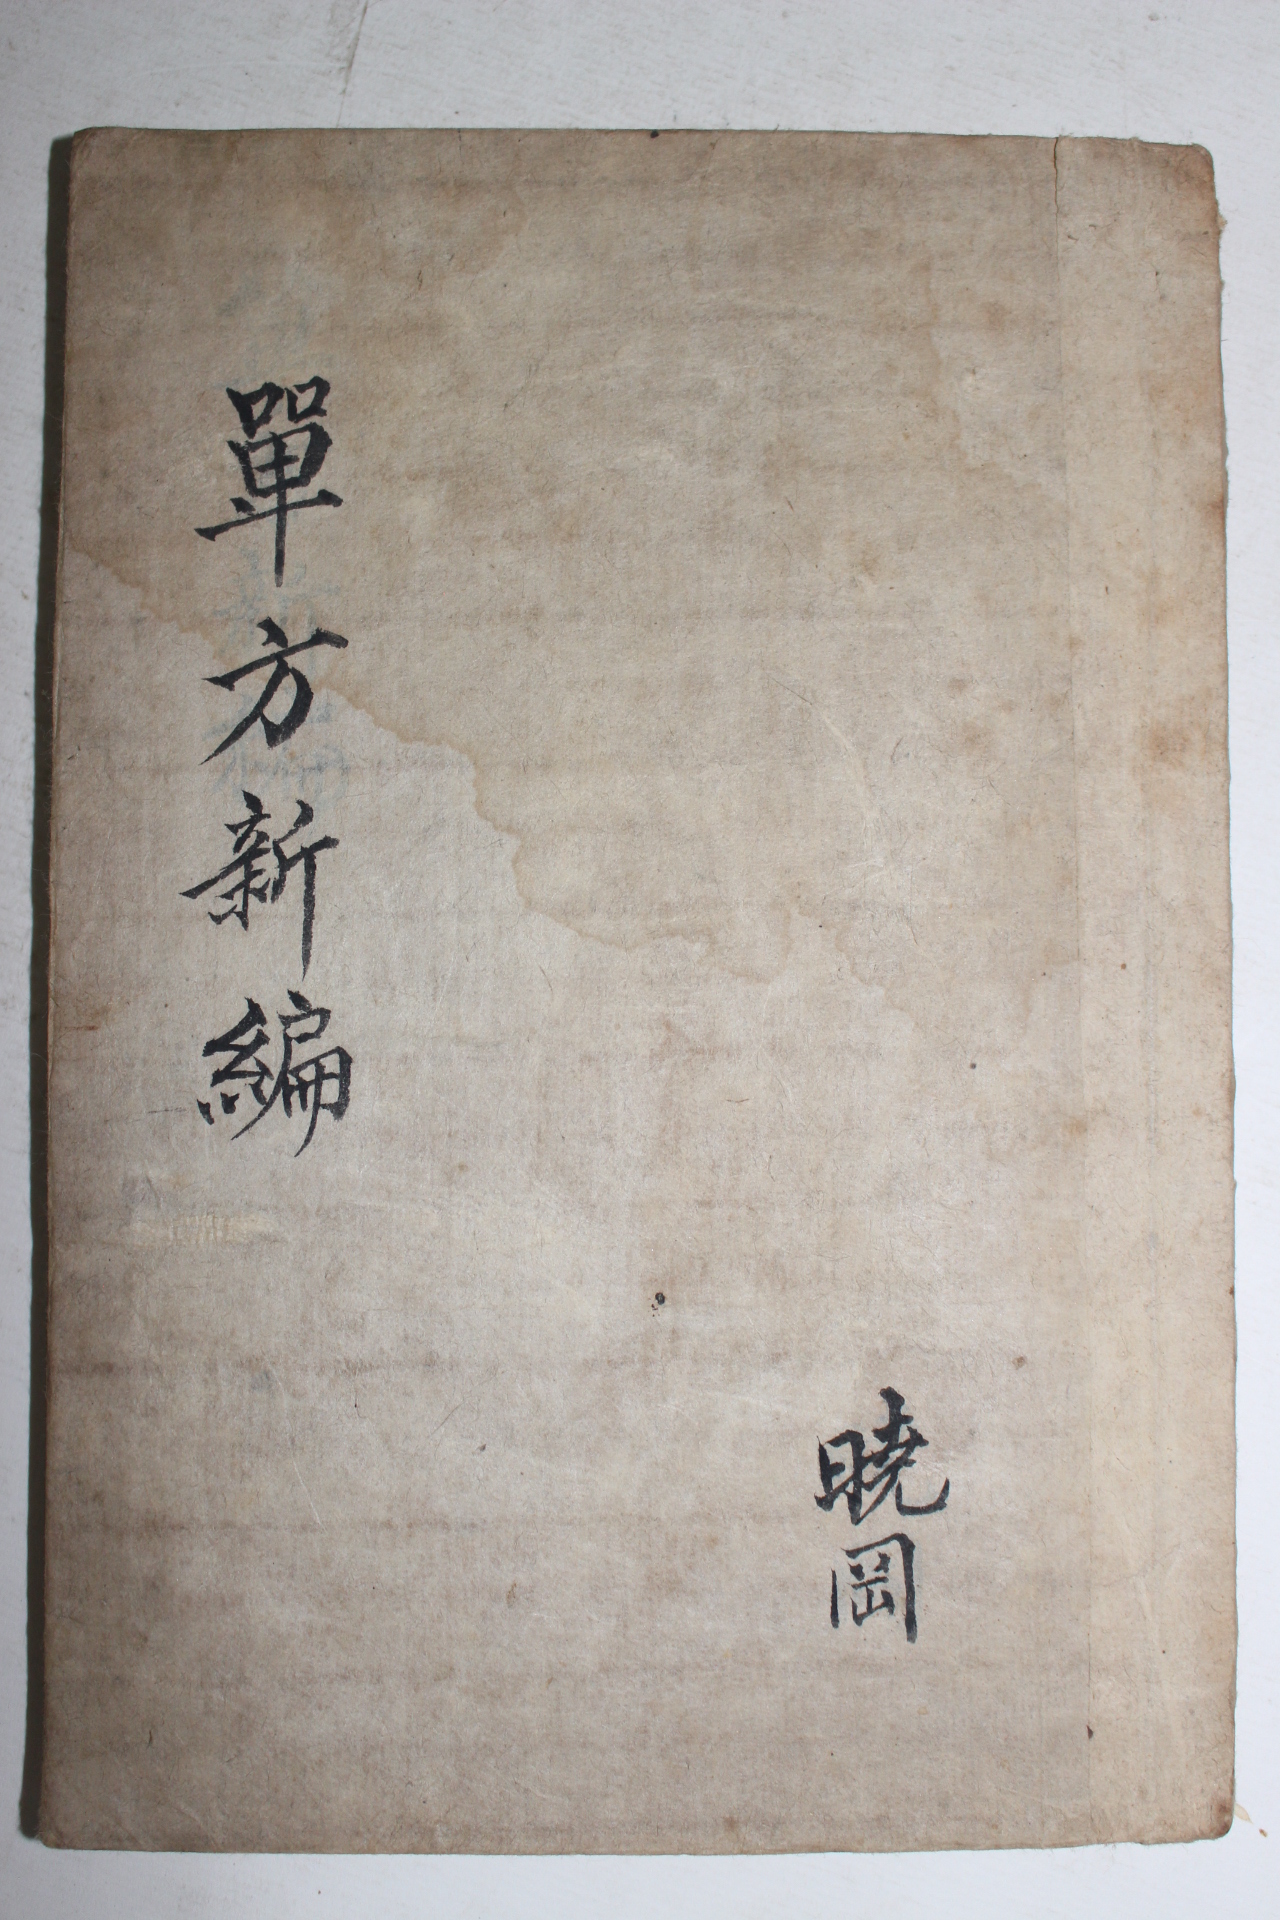 單方新編
曉岡